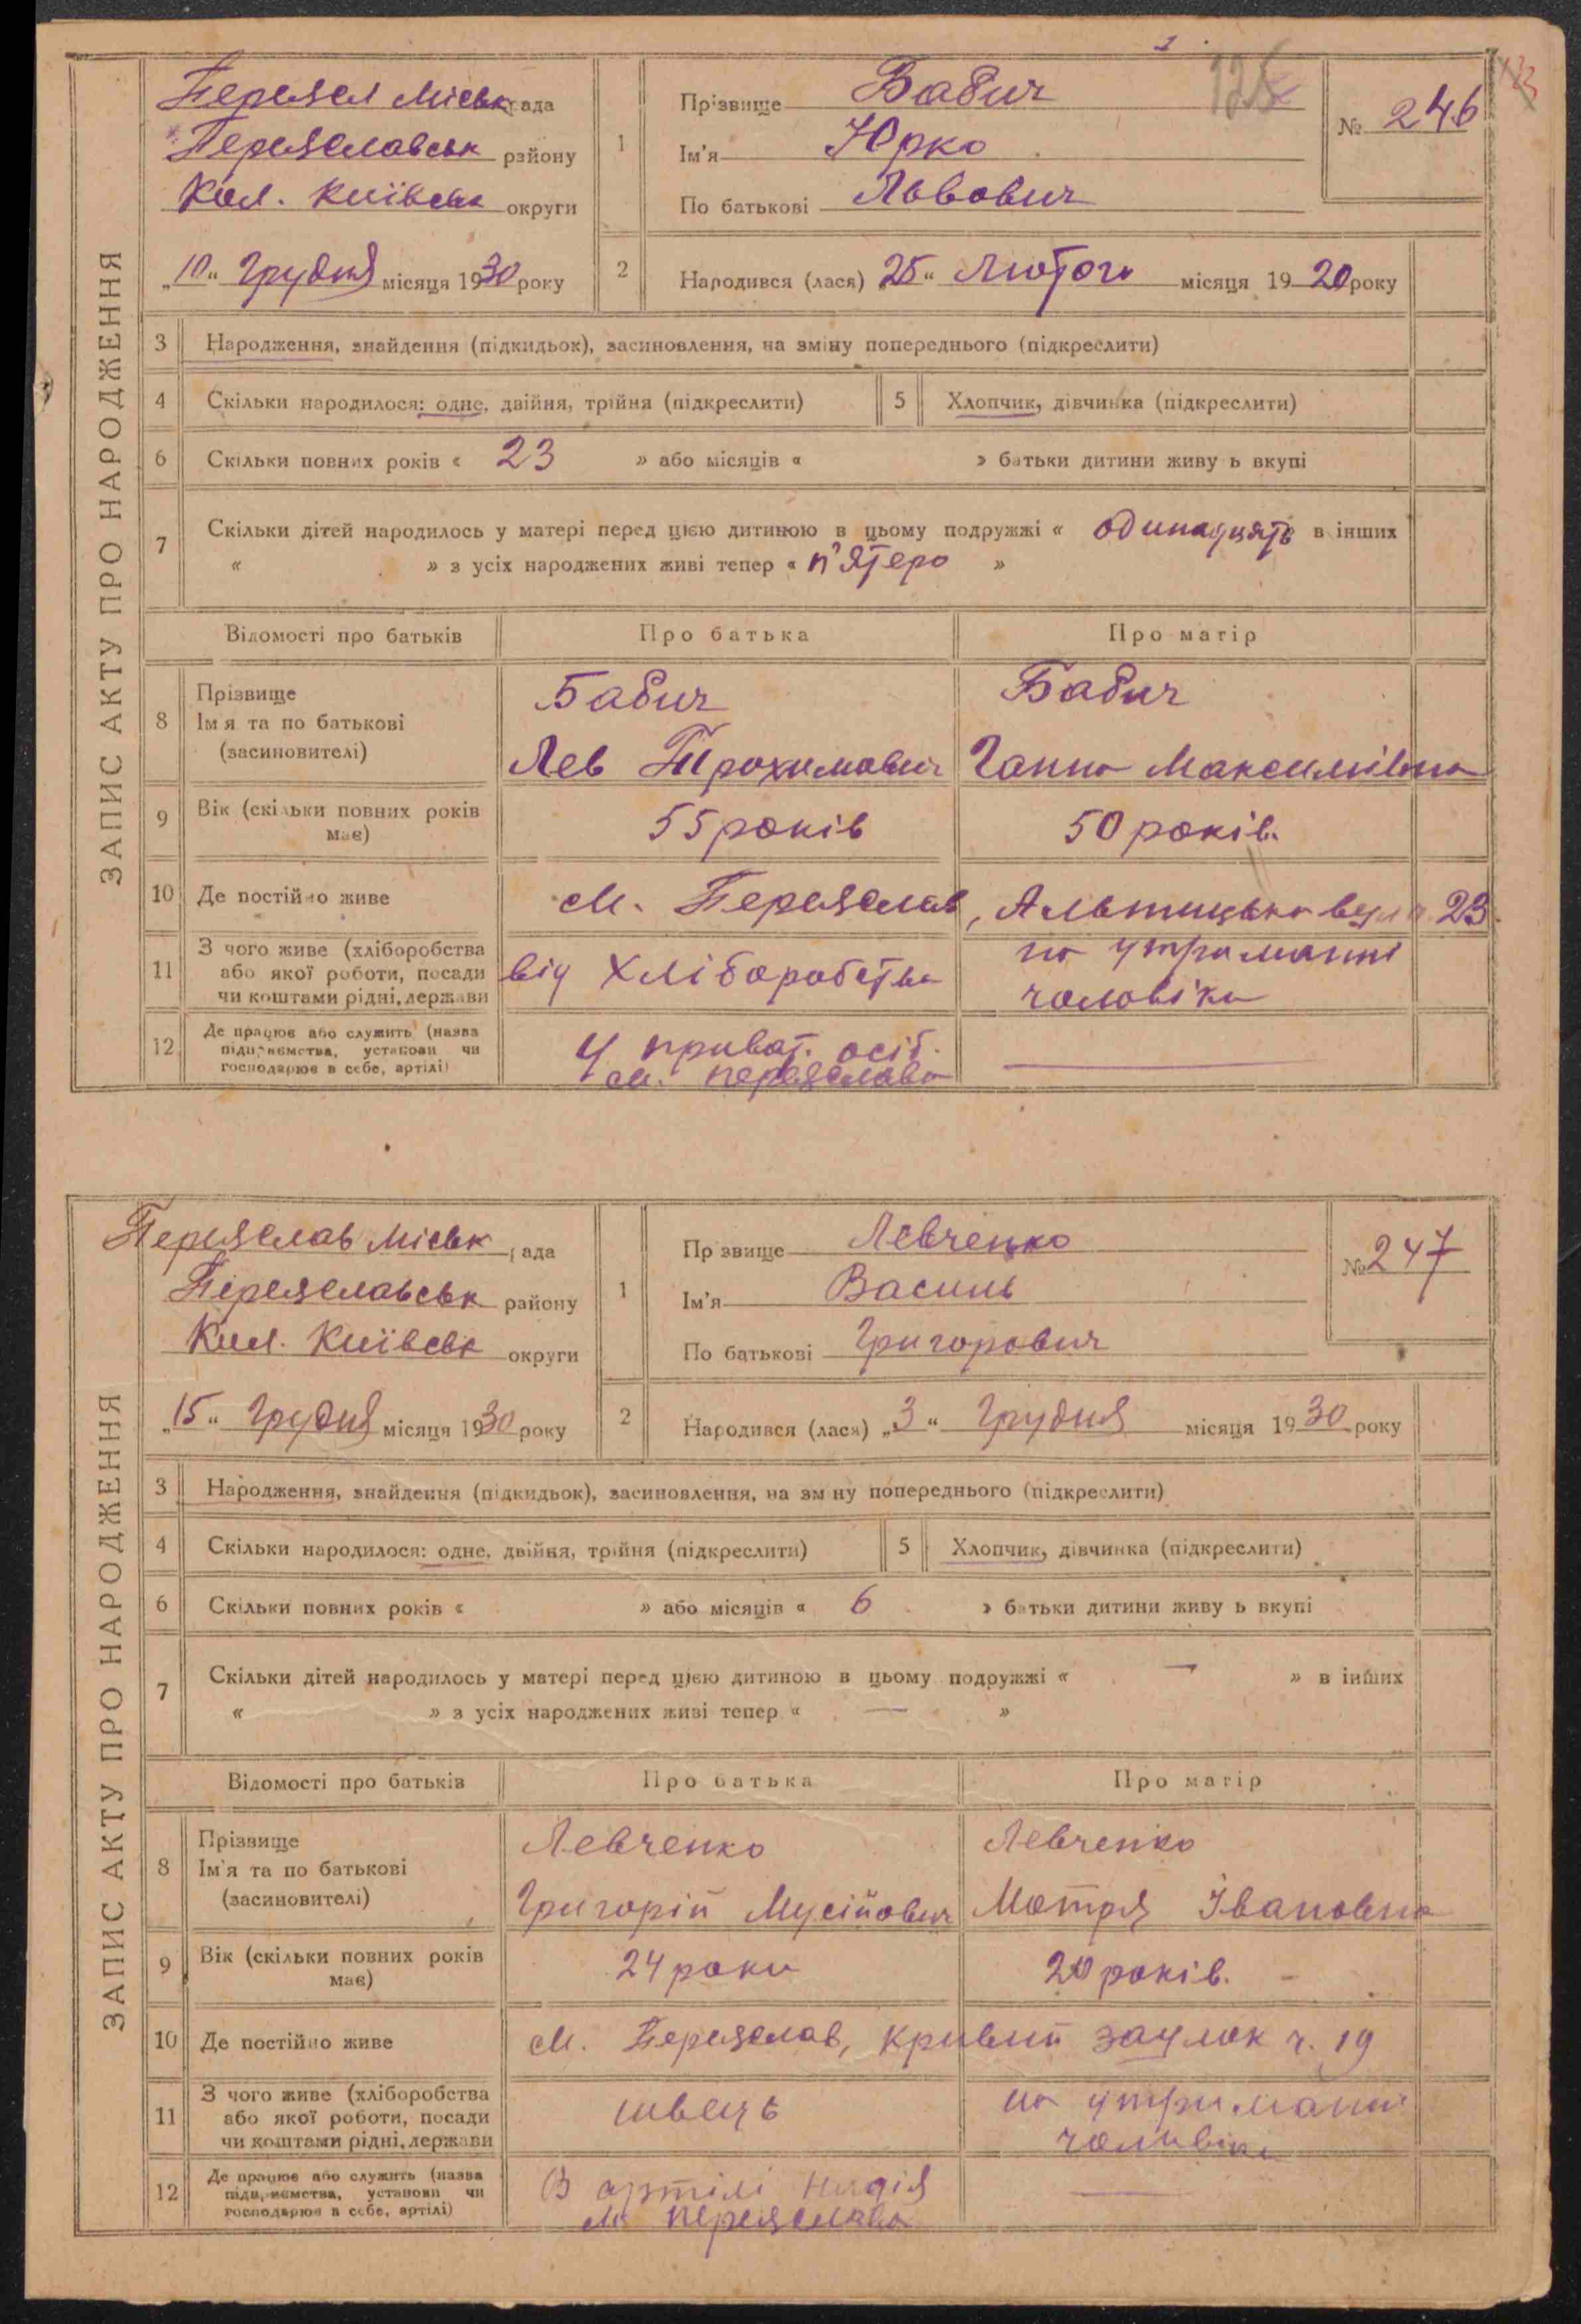 125
123
ЗАПИС АКТУ ПРО НАРОДЖЕННЯ
Переясл Міськрада
Переяславськ району
Кол. Київськ округи
„10“ Грудня місяця 1930 року
1
Прізвище Бабич
Ім'я Юрко
По батькові Львович
№ 246
2
Народився (лася) 25“ Лютого місяця 1920 року
3 Народження, знайдення (підкидьок), засиновлення, на зміну попереднього (підкреслити)
4 Скільки народилося: одне, двійня, трійня (підкреслити) 5 Хлопчик, дівчинка (підкреслити)
6 Скільки повних років « 23 » або місяців « » батьки дитини живуть вкупі
7 Скільки дітей народилось у матері перед цією дитиною в цьому подружжі « одинадцять в інших
« » з усіх народжених живі тепер « п'ятеро »
Відомості про батьків Про батька Про матір
8 Прізвище Бабич Бабич
Ім'я та по батькові
(засиновителі) Лев Трохимович Ганна Максимівна
9 Вік (скільки повних років має) 55 років 50 років.
10 Де постійно живе м. Переяслав, Альтицька вул. 23.
11 З чого живе (хліборобства від Хліборобства на утриманні
або якої роботи, посади чоловіка
чи коштами рідні, держави
12 Де працює або служить (назва У приват. осіб.
підприємства, установи чи м. Переяслава
господарює в себе, артілі)
ЗАПИС АКТУ ПРО НАРОДЖЕННЯ
Переяслав Міськрада
Переяславськ району
Кол. Київськ округи
„15“ Грудня місяця 1930 року
1
Прізвище Левченко
Ім'я Василь
По батькові Григорович
№ 247
2
Народився (лася) „3“ Грудня місяця 1930 року
3 Народження, знайдення (підкидьок), засиновлення, на зміну попереднього (підкреслити)
4 Скільки народилося: одне, двійня, трійня (підкреслити) 5 Хлопчик, дівчинка (підкреслити)
6 Скільки повних років « » або місяців « 6 » батьки дитини живуть вкупі
7 Скільки дітей народилось у матері перед цією дитиною в цьому подружжі « — » в інших
« » з усіх народжених живі тепер « — »
Відомості про батьків Про батька Про матір
8 Прізвище Левченко Левченко
Ім'я та по батькові
(засиновителі) Григорій Мусійович Мотря Івановна
9 Вік (скільки повних років має) 24 роки 20 років.
10 Де постійно живе м. Переяслав, Кривий заулок ч. 19
11 З чого живе (хліборобства швець на утриманні
або якої роботи, посади чоловіка
чи коштами рідні, держави
12 Де працює або служить (назва В артілі Надія
підприємства, установи чи м. Переяслава
господарює в себе, артілі)